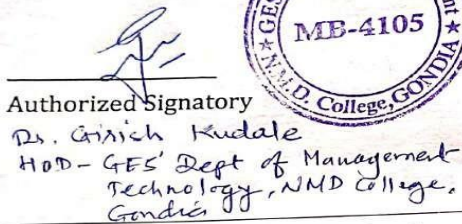 GES
nt
MB-4105
N.M.D. College, GONDIA
Authorized Signatory
Dr. Girish Kudale
HOD - GES' Dept of Management
Technology, NMD College,
Gondia